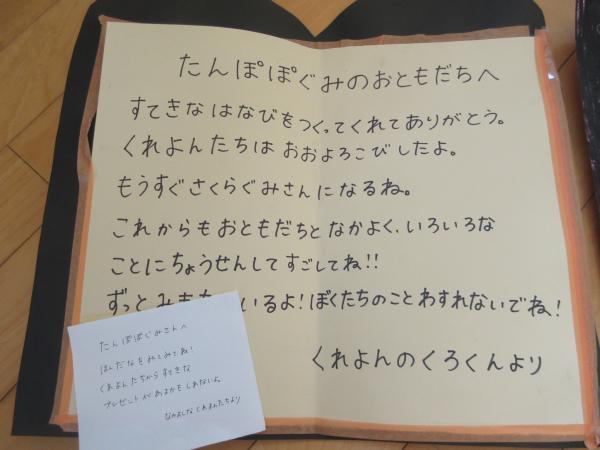 たんぽぽぐみのおともだちへ
すてきなはなびをつくってくれてありがとう。
くれよんたちはおおよろこびしたよ。
もうすぐさくらぐみさんになるね。
これからもおともだちとなかよく、いろいろな
ことにちょうせんしてすごしてね!!
ずっと いるよ!ぼくたちのことわすれないでね!
くれよんのくろくんより
たんぽぽぐみさんへ
ほんだなをみてみてね!
くれよんたちからすてきな
プレゼントがあるかもしれないよ。
なかよしなくれよんたちより